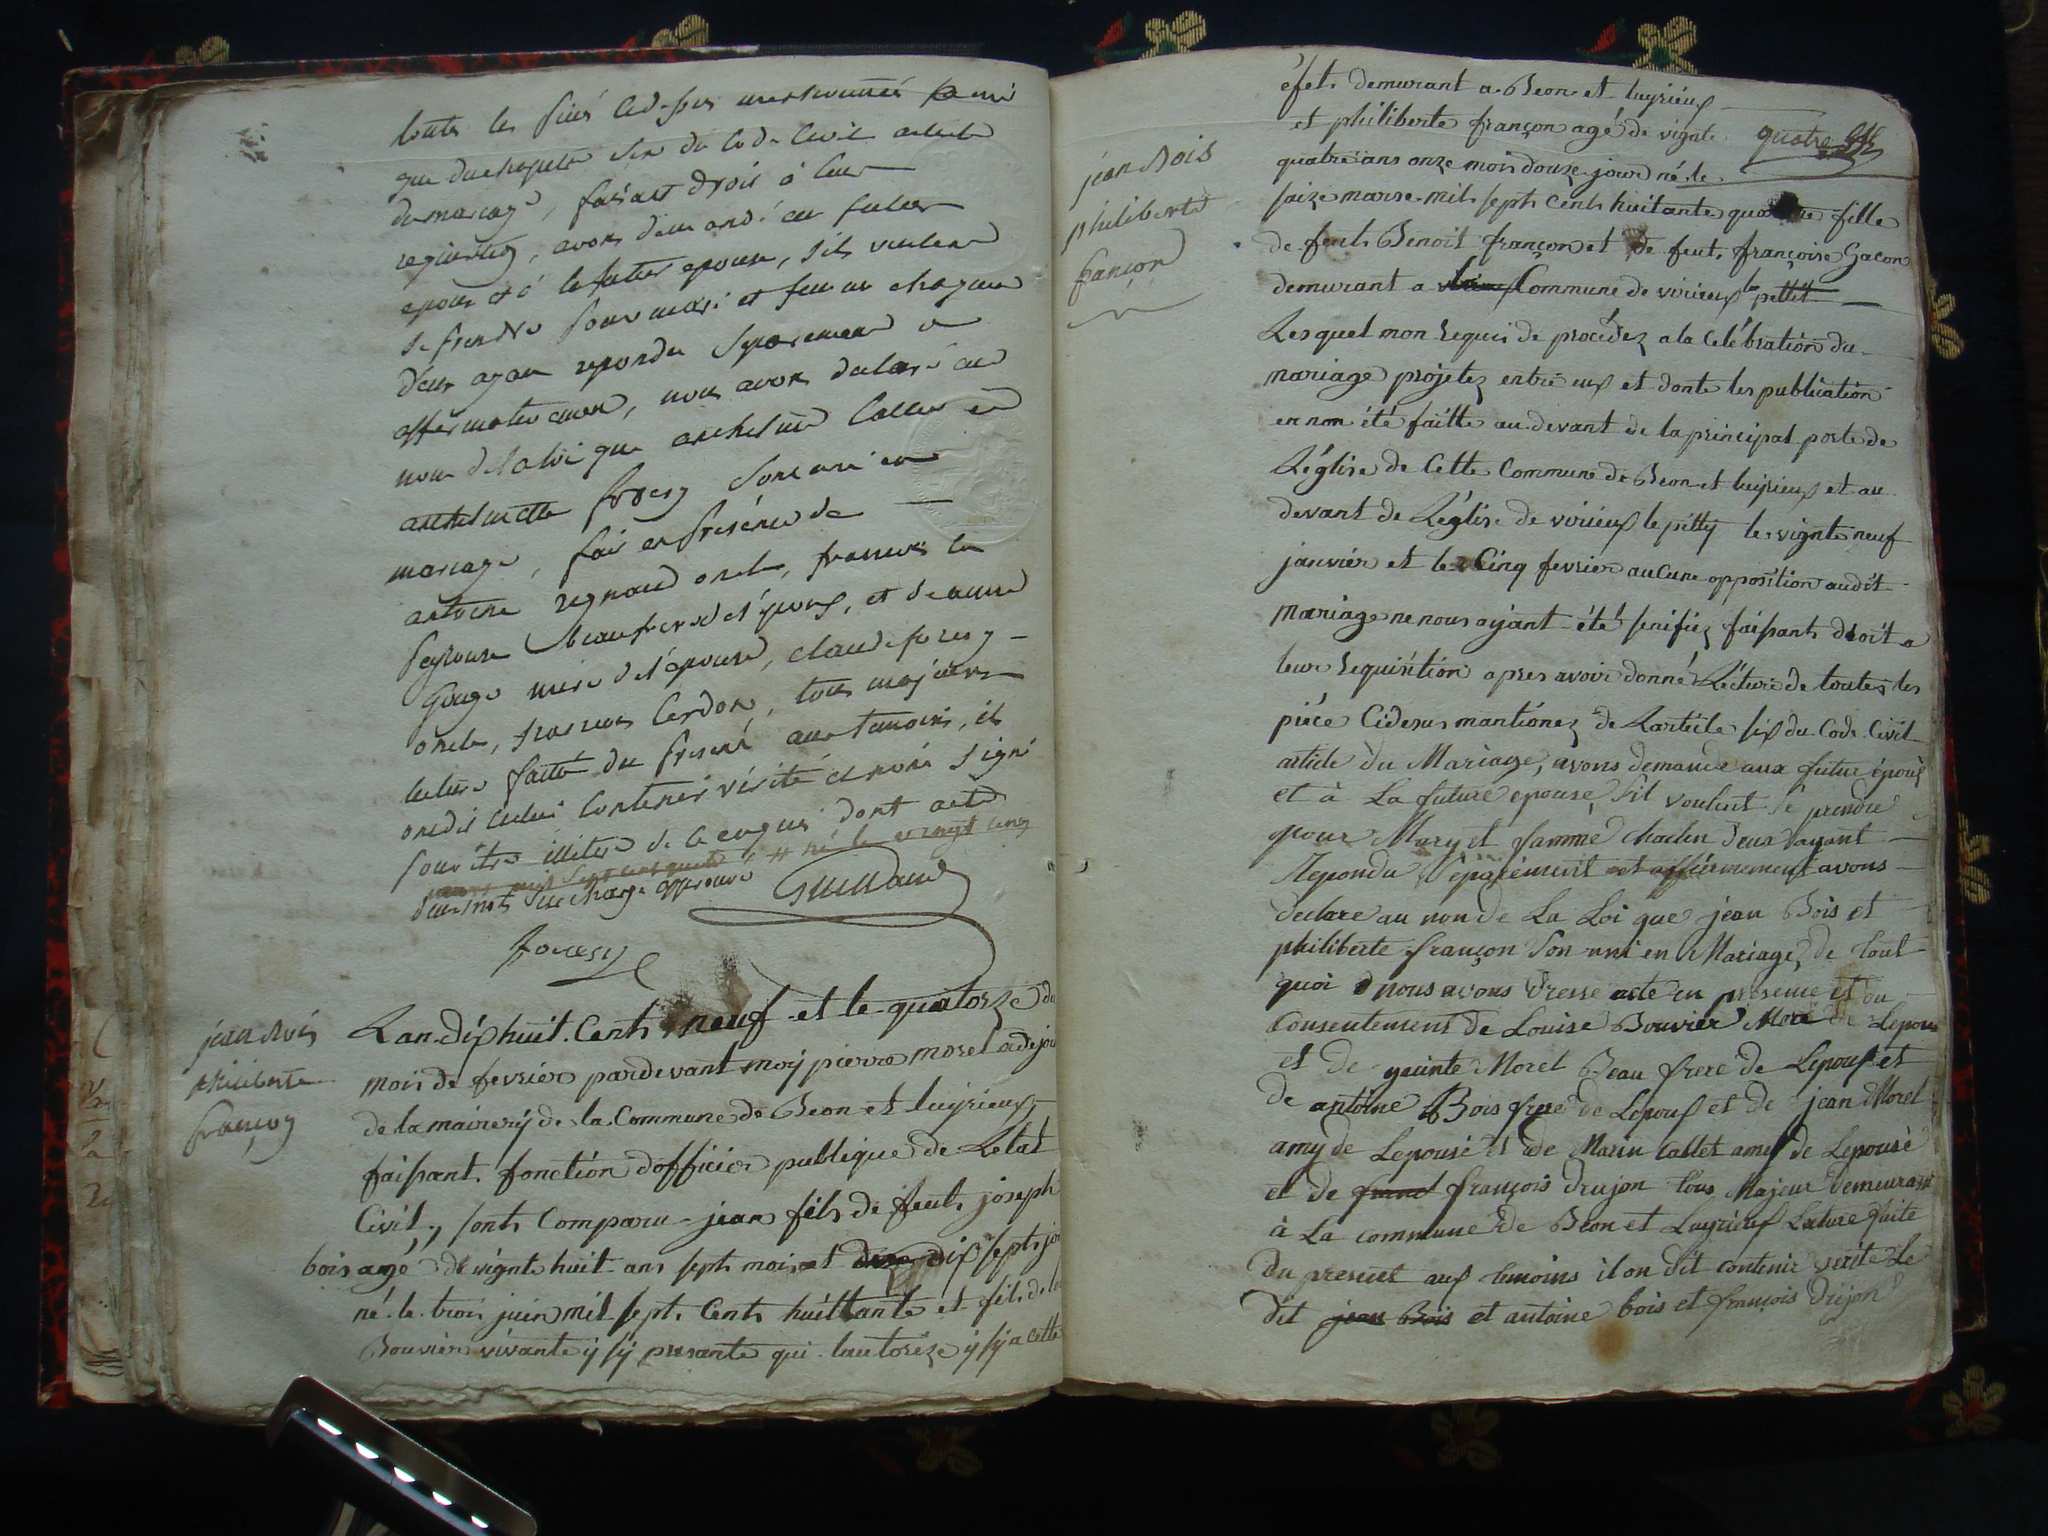 toutes les
que du chapitre six du Code Civil
du mariage, faisant droit à leur
requisition, avons demandé au futur
epoux et à la future epouse, s'ils veulent
se prendre pour mari et femme chaqun
d'eux ayant repondu separement et
affirmativement, nous avons declaré au
nom de la loi que anthelme Callet et
anthelmette forest sont uni en
mariage, fait en présence de
antoine regnaud oncle, francois
beaufrere de l'époux, et jeanne
mere de l'épouse, claude forest
oncle, francois Cerdon, tous majeurs
lecture faitte du present aux temoins, ils
ont dit icelui contenir vérité et non signé
pour être illiteré de ce enquis dont acte
deux mots en charge approuvé
Guillaud
forest
jean bois
philiberte
françon
Lan dix huit Cents neuf et le quatorze du
mois de fevrier pardevant moy pierre morel adejoi
de la mairery de la Commune de Beon et luyrieux
faisant fonction dofficier publique de Letat
Civil, sonts Comparu jean fils de feut joseph
bois agé de vignte huit ans septs mois et dix septs jou
né le trois juin mil septs Cents huittante et fils de
Bouvier vivante y sy presante qui lautorize y sy a cette
jean Bois
philiberte
françon
éfets demurant a Beon et luyrieux
et philiberte françon agé de vignte quatre
quatre ans onze mois douze jours né le
saize marse mils septs Cents huitante quatre fille
de feut Benoit françon et de feut françoise Gacon
demurant a Commune de virieux le pettit
Lesquel mon requis de procédez a la Celébration du
mariage projetez entre eux et donte les publication
en non été faitte au devant de la principal porte de
Léglise de Cette Commune de Beon et luyrieux et au
devant de Léglise de virieux le pitty le vignte neuf
janvier et le Cinq fevrier aucune opposition audit
mariage ne nous ayant été sinifiez faisants droit a
leur requisition apres avoir donné Lecture de toutes les
piéce Cidesus mantionez de Larticle six du Code Civil
article du Mariage, avons demande aux futur époux
et à La future epouse, s'il voulent se prendre
pour Mary et famme chaclun deux ayant
Repondu separément et affiermement avons
declare au nom de La Loi que jean Bois et
philiberte françon son uni en Mariage, de tout
quoi nous avons Dresse acte en presence et du
consentement de Louise Bouvier Mere de Lepoux
et de yacinte Morel Beau frere de Lepoux et
de antoine Bois frere de Lepoux et de jean Morel
amy de Lepouse et de Marin Callet amy de Lepouse
et de françois drujon tous Majeur demeurant
à La commune de Beon et Luyrieux Lecture faite
du present aux temoins il on dit contenir verite Le
dit jean Bois et antoine bois et françois Drujon